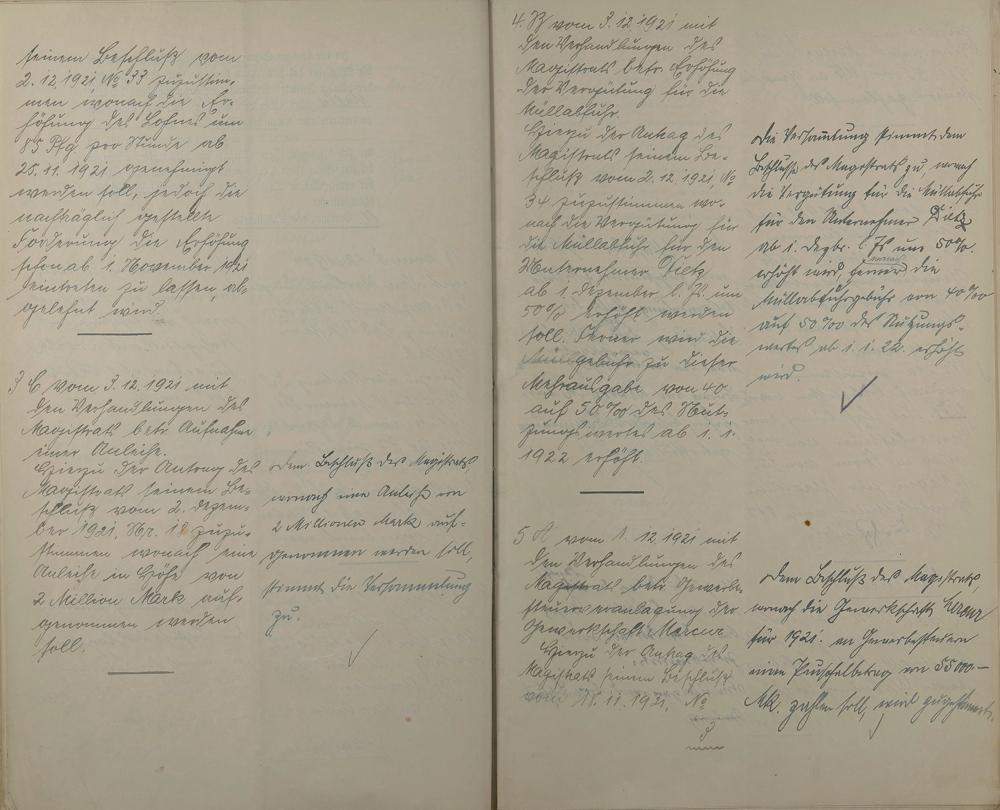 seinem Beschluß vom
2.12.1921, No 33 zuzustim-
men wonach die Er-
höhung des Lohnes um
55 Pfg pro Stunde ab
25.11.1921 genehmigt
werden soll, jedoch die
nachträglich gestellte
Forderung die Erhöhung
schon ab 1. November 1921
eintreten zu lassen, ab-
gelehnt wird.
3 C vom 3.12.1921 mit
den Verhandlungen des
Magistrats betr. Aufnahme
einer Anleihe.
Hierzu der Antrag des
Magistrats seinem Be-
schluß vom 2. Dezem-
ber 1921, Nr. 18 zuzu-
stimmen wonach eine
Anleihe in Höhe von
2 Million Mark auf-
genommen werden
soll.
Dem Beschluß des Magistrats
wonach eine Anleihe von
2 Millionen Mark auf-
genommen werden soll,
stimmt die Versammlung
zu.
4. B vom 3.12.1921 mit
den Verhandlungen des
Magistrats betr. Erhöhung
der Vergütung für die
Müllabfuhr.
Hierzu der Antrag des
Magistrats seinem Be-
schluß vom 2.12.1921, No
34 zuzustimmen wo-
nach die Vergütung für
die Müllabfuhr für den
Unternehmer Dietz
ab 1. Dezember l. Js. um
50% erhöht werden
soll. Ferner wird die
gebühr zu dieser
Mehrausgabe von 40
auf 50% des Nut-
zungswertes ab 1.1.
1922 erhöht.
Die Versammlung stimmt dem
Beschlusse des Magistrats zu, wonach
die Vergütung für die Müllabfuhr
für den Unternehmer Dietz
ab 1. Dezbr. l. Js um 50%
erhöht wird, ferner die
Müllabfuhrgebühr von 40%
auf 50% des Nutzungs-
wertes ab 1.1.22. erhöht
wird.
5 A vom 1.12.1921 mit
den Verhandlungen des
Magistrats betr. Gewerbe-
steuerveranlagung der
Gewerkschaft Mercur
Hierzu der Antrag des
Magistrats seinem Beschluß
vom 18.11.1921, No
3
Dem Beschluß des Magistrats,
wonach die Gewerkschaft Mercur
für 1921. an Gewerbesteuern
einen Pauschalbetrag von 55000-
Mk. zahlen soll, wird zugestimmt.